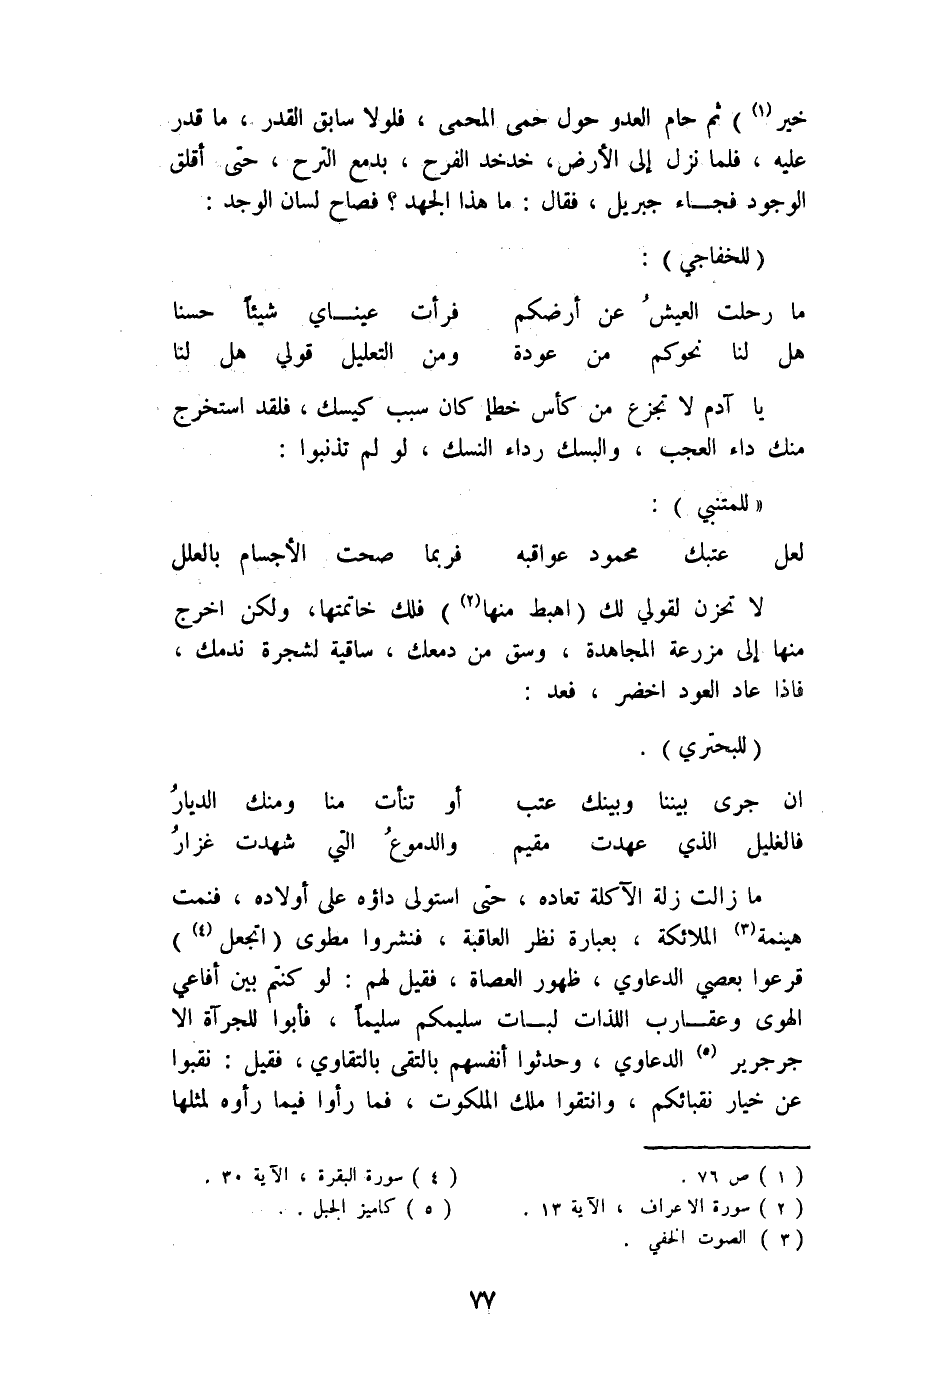 خير (١) ) ثم حام العدو حول حمى المحمى ، فلولا سابق القدر ، ما قدر
عليه ، فلما نزل إلى الأرض، خدخد الفرح ، بدمع الترح ، حتى أقلق
الوجود فجـــاء جبريل ، فقال : ما هذا الجهد ؟ فصاح لسان الوجد :
( للخفاجي ) :
ما رحلت العيسُ عن أرضكم فرأت عينـــاي شيئاً حسنا
هل لنا نحوكم من عودة ومن التعليل قولي هل لنا
يا آدم لا تجزع من كأس خطإ كان سبب كيسك ، فلقد استخرج
منك داء العجب ، والبسك رداء النسك ، لو لم تذنبوا :
« للمتنبي ) :
لعل عتبك محمود عواقبه فربما صحت الأجسام بالعلل
لا تحزن لقولي لك ( اهبط منها (٢) ) فلك خاتمتها، ولكن اخرج
منها إلى مزرعة المجاهدة ، وسق من دمعك ، ساقية لشجرة ندمك ،
فاذا عاد العود اخضر ، فعد :
( للبحتري ) .
ان جرى بيننا وبينك عتب أو تنأت منا ومنك الديارُ
فالغليل الذي عهدت مقيم والدموعُ التي شهدت غزارُ
ما زالت زلة الآكلة تعاده ، حتى استولى داؤه على أولاده ، فنمت
هينمة (٣) الملائكة ، بعبارة نظر العاقبة ، فنشروا مطوى ( اتجعل (٤) )
قرعوا بعصي الدعاوي ، ظهور العصاة ، فقيل لهم : لو كنتم بين أفاعي
الهوى وعقـــارب اللذات لبـــات سليمكم سليماً ، فأبوا للجرآة الا
جرجرير (٥) الدعاوي ، وحدثوا أنفسهم بالتقى بالتقاوي ، فقيل : نقبوا
عن خيار نقبائكم ، وانتقوا ملك الملكوت ، فما رأوا فيما رأوه لمثلها
( ١ ) ص ٧٦ .
( ٢ ) سورة الاعراف ، الآية ١٣ .
( ٣ ) الصوت الخفي .
( ٤ ) سورة البقرة ، الآية ٣٠ .
( ٥ ) كاميز الجبل .
٧٧